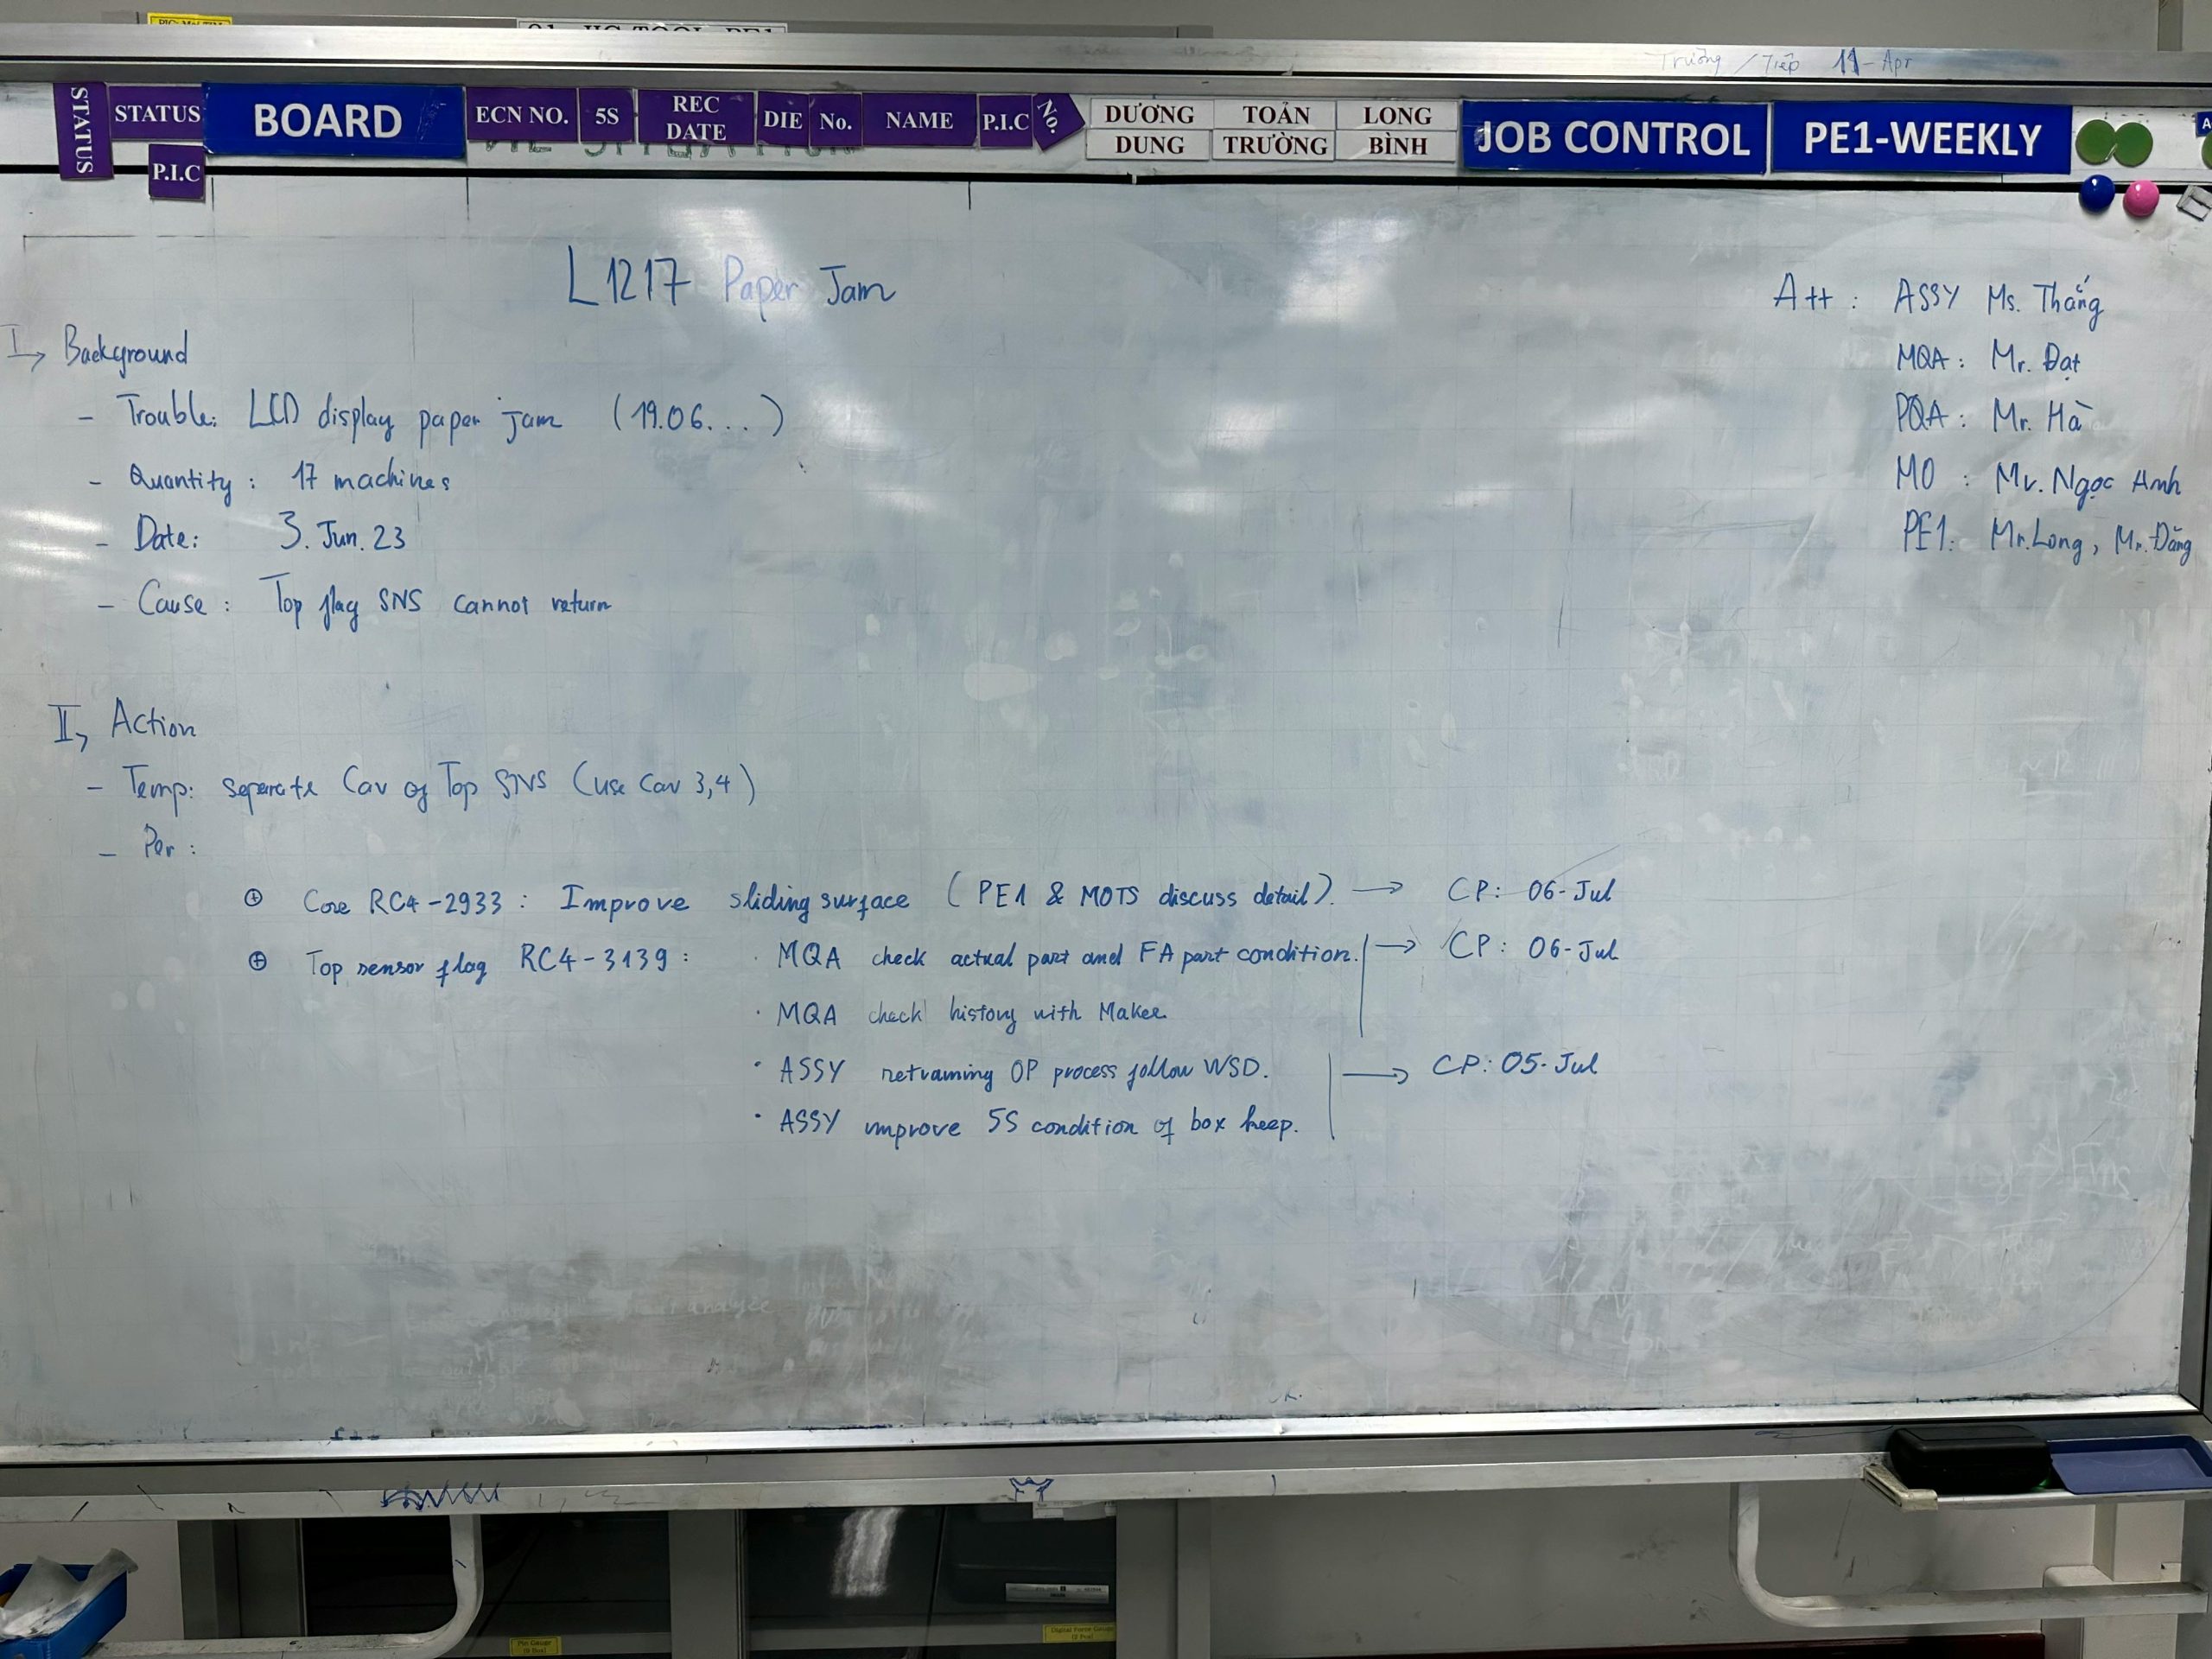 Trường / Tiệp 11-Apr
STATUS
STATUS
P.I.C
BOARD
ECN NO.
5S
REC DATE
DIE
No.
NAME
P.I.C
No.
DƯƠNG TOẢN LONG
DUNG TRƯỜNG BÌNH
JOB CONTROL
PE1-WEEKLY
L1217 Paper Jam
Att : ASSY Ms. Thắng
MQA : Mr. Đạt
PQA : Mr. Hà
MO : Mr. Ngọc Anh
PE1: Mr. Long, Mr. Đăng
I, Background
- Trouble: LCD display paper jam (19.06...)
- Quantity : 17 machines
- Date: 3. Jun. 23
- Cause : Top flag SNS cannot return
II, Action
- Temp: separate Cav of Top SNS (use Cav 3,4)
- Per :
⊕ Core RC4-2933 : Improve sliding surface (PE1 & MOTS discuss detail). → CP: 06-Jul
⊕ Top sensor flag RC4-3139 : · MQA check actual part and FA part condition. → CP: 06-Jul
· MQA check history with Maker
· ASSY retraining OP process follow WSD. → CP: 05-Jul
· ASSY improve 5S condition of box keep.
Pin Gauge
Digital Force Gauge